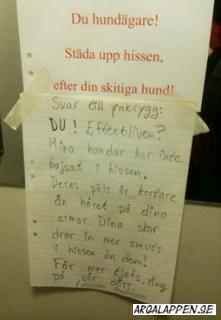 Du hundägare!
Städa upp hissen,
efter din skitiga hund!
Svar till pnkrygg:
DU! Efterbliven?
Mina hundar har inte
bajsat i hissen.
Deras päls är kortare
än håret på dina
armar. Dina skor
drar in mer smuts
i hissen än dem!
För mer tjafs, ring
på vår dörr.
ARGALAPPEN.SE